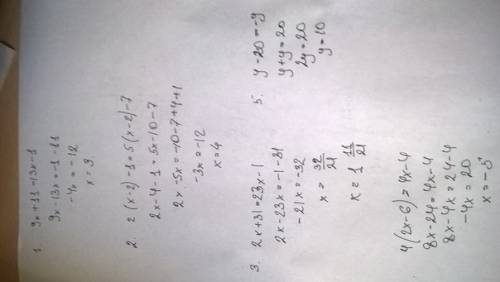 1. 9x+11=13x-1
9x-13x=-1-11
-4x=-12
x=3.
2. 2(x-2)-1=5(x-2)-7
2x-4-1=5x-10-7
2x-5x=-10-7+4+1
-3x=-12
x=4
3. 2x+31=23x-1
2x-23x=-1-31
-21x=-32
x = 32/21
x=1 11/21
5. y-20=-y
y+y=20
2y=20
y=10
4(2x-6)=4x-4
8x-24=4x-4
8x-4x=24-4
-4x=20